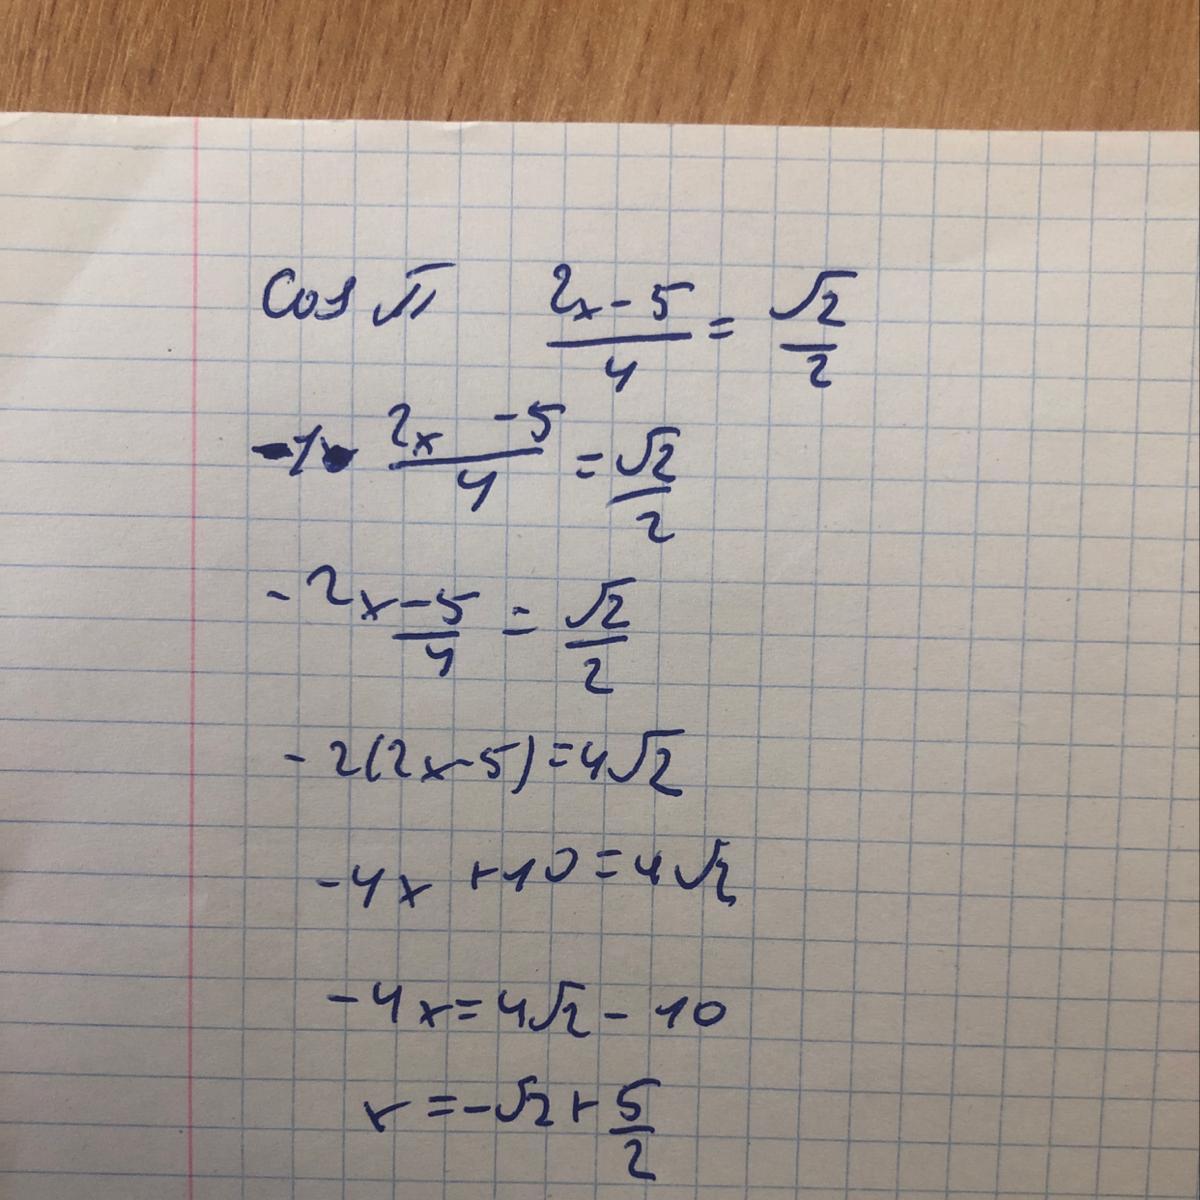 cos π (2x-5)/4 = √2/2
-1· (2x-5)/4 = √2/2
- 2x-5/4 = √2/2
-2(2x-5)=4√2
-4x +10=4√2
-4x=4√2-10
x=-√2+5/2